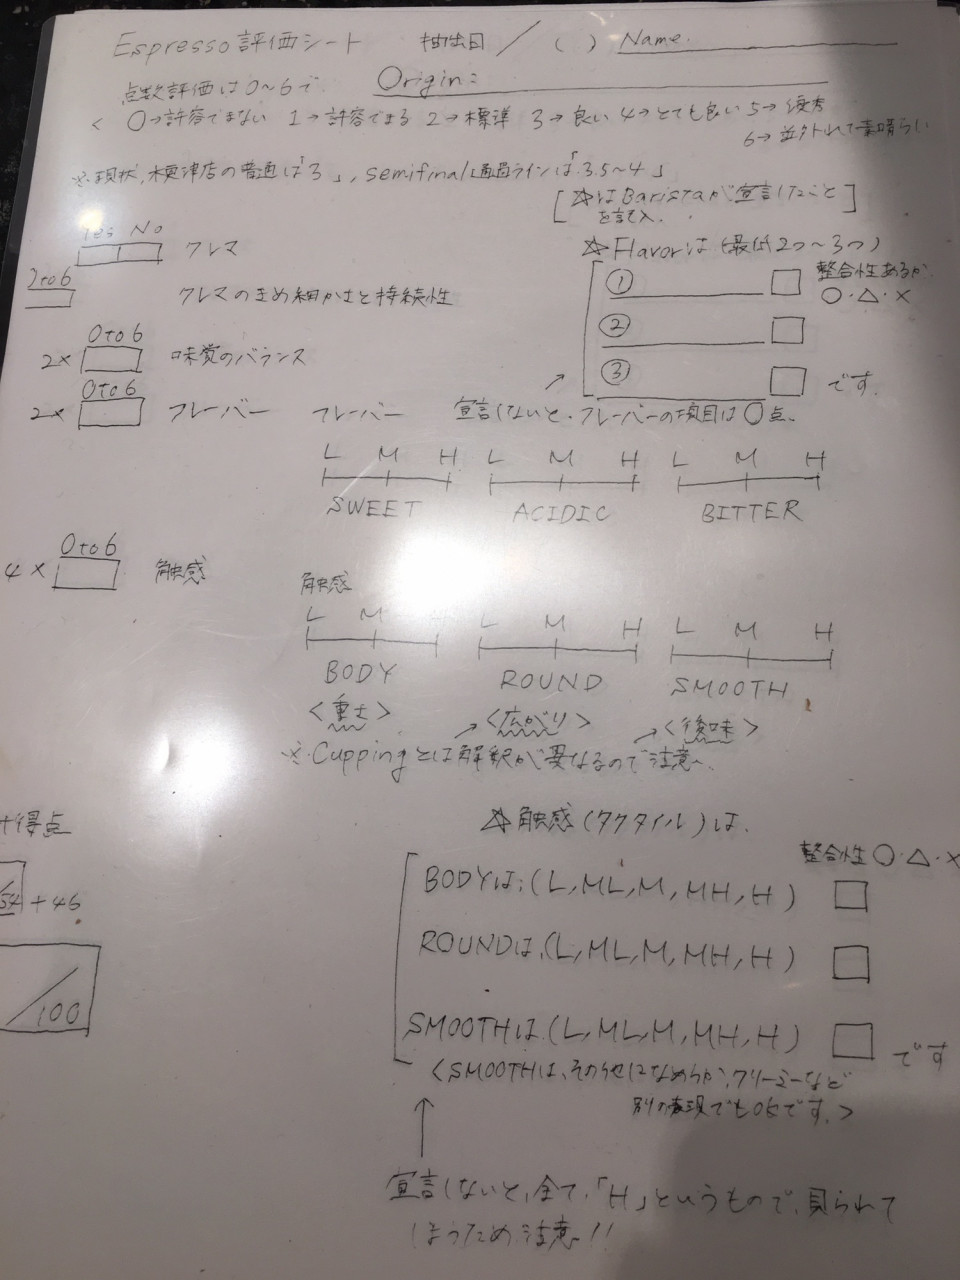 Espresso評価シート 抽出日 / ( ) Name.
点数評価は0~6で Origin:
< 0→許容できない 1→許容できる 2→標準 3→良い 4→とても良い 5→優秀
6→並外れて素晴らしい
※現状,木更津店の普通は「3」, semifinal通過ラインは「3.5~4」
[☆はBaristaが宣言したこと
を記入.]
Yes No
クレマ
☆Flavorは(最低2つ~3つ)
整合性あるか
○・△・×
① 
② 
③ です.
to6
クレマのきめ細かさと持続性
0to6
2× 味覚のバランス
0to6
2× フレーバー フレーバー 宣言しないと.フレーバーの項目は0点.
L M H L M H L M H
SWEET ACIDIC BITTER
0to6
4× 触感 触感
L M H L M H L M H
BODY ROUND SMOOTH
<重さ> <広がり> <後味>
※.Cuppingとは解釈が異なるので注意.
得点
54 +46
/100
☆触感(タクタイル)は.
整合性○・△・×
BODYは,(L,ML,M,MH,H)
ROUNDは,(L,ML,M,MH,H)
SMOOTHは(L,ML,M,MH,H) です
<SMOOTHは,そのうせになめらか,クリーミーなど
別の表現でもOKです.>
宣言しないと,全て,「H」というもので,見られて
しまうため注意!!